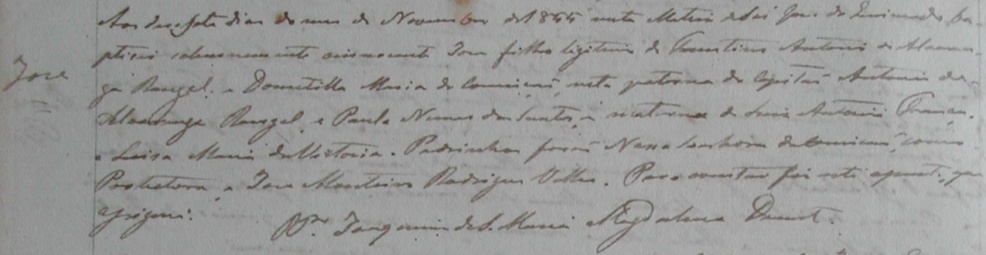 Aos desasete dias do mes de Novembro de 1855 nesta Matriz de São Jose do Queimado ba-
ptisei solemnemente ao innocente Jose filho legitimo de Faustino Antonio de Alvaren-
José
ga Rangel, e Domitilla Maria da Conceicaõ, neto paterno do Capitaõ Antonio de
Alvarenga Rangel, e Paula Nunes dos Santos, e materno de Luis Antonio
e Luisa Maria da Victoria. Padrinhos foraõ Nossa Senhora da Conceicaõ, como
Protectora, e Jose Monteiro Rodrigues Velho. Para constar fiz este assento, que
assignei.
Joaquim de S. Maria Magdalena Duarte.